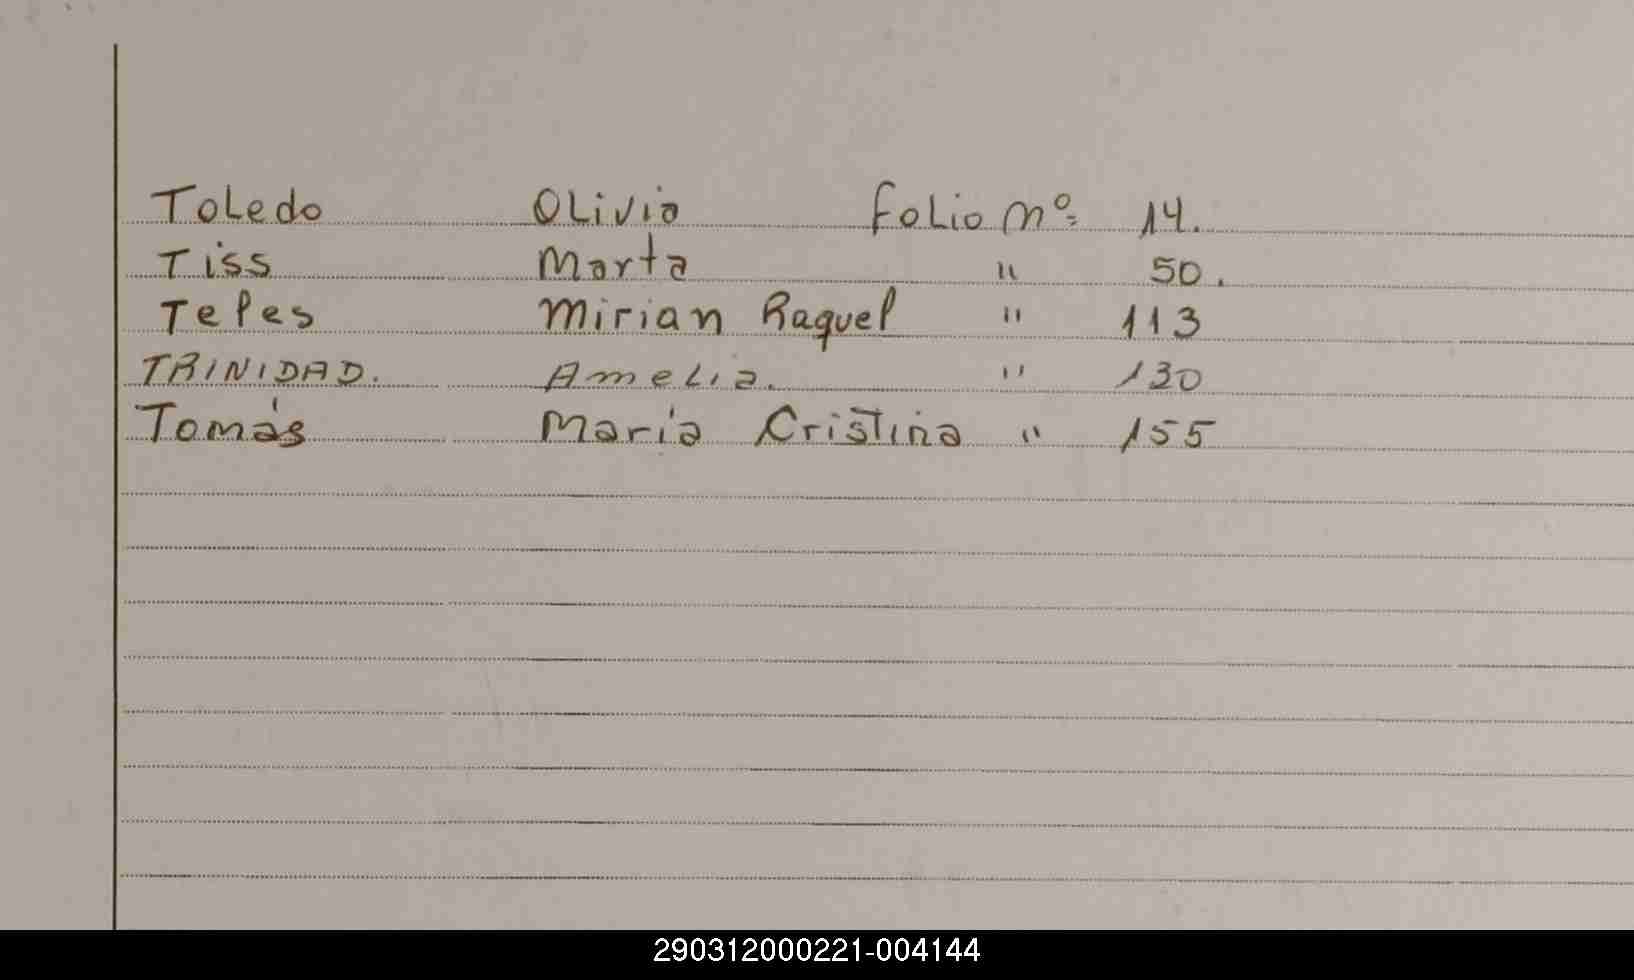 Toledo Olivia Folio Nº 14.
Tiss Marta " 50.
Tepes Mirian Raquel " 113
TRINIDAD. Amelia. " 130
Tomás María Cristina " 155
290312000221-004144